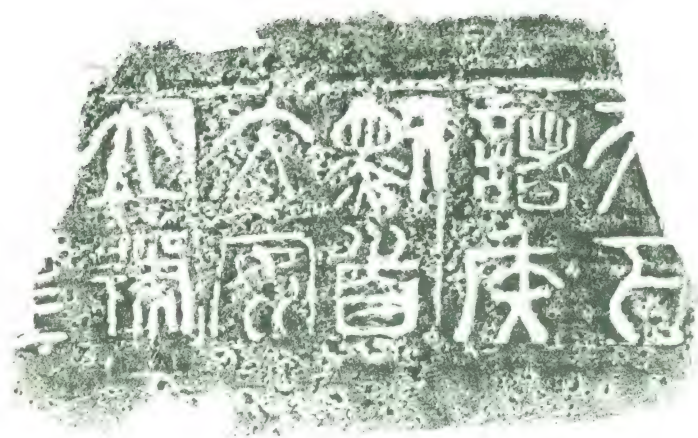 天下
諸侯
黔首
大安
立號